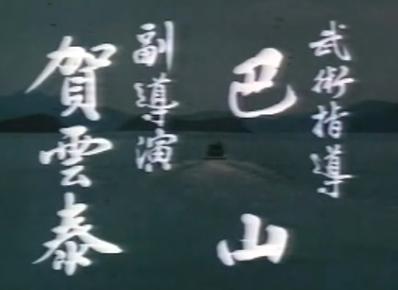 武術指導
巴山
副導演
賀雲泰